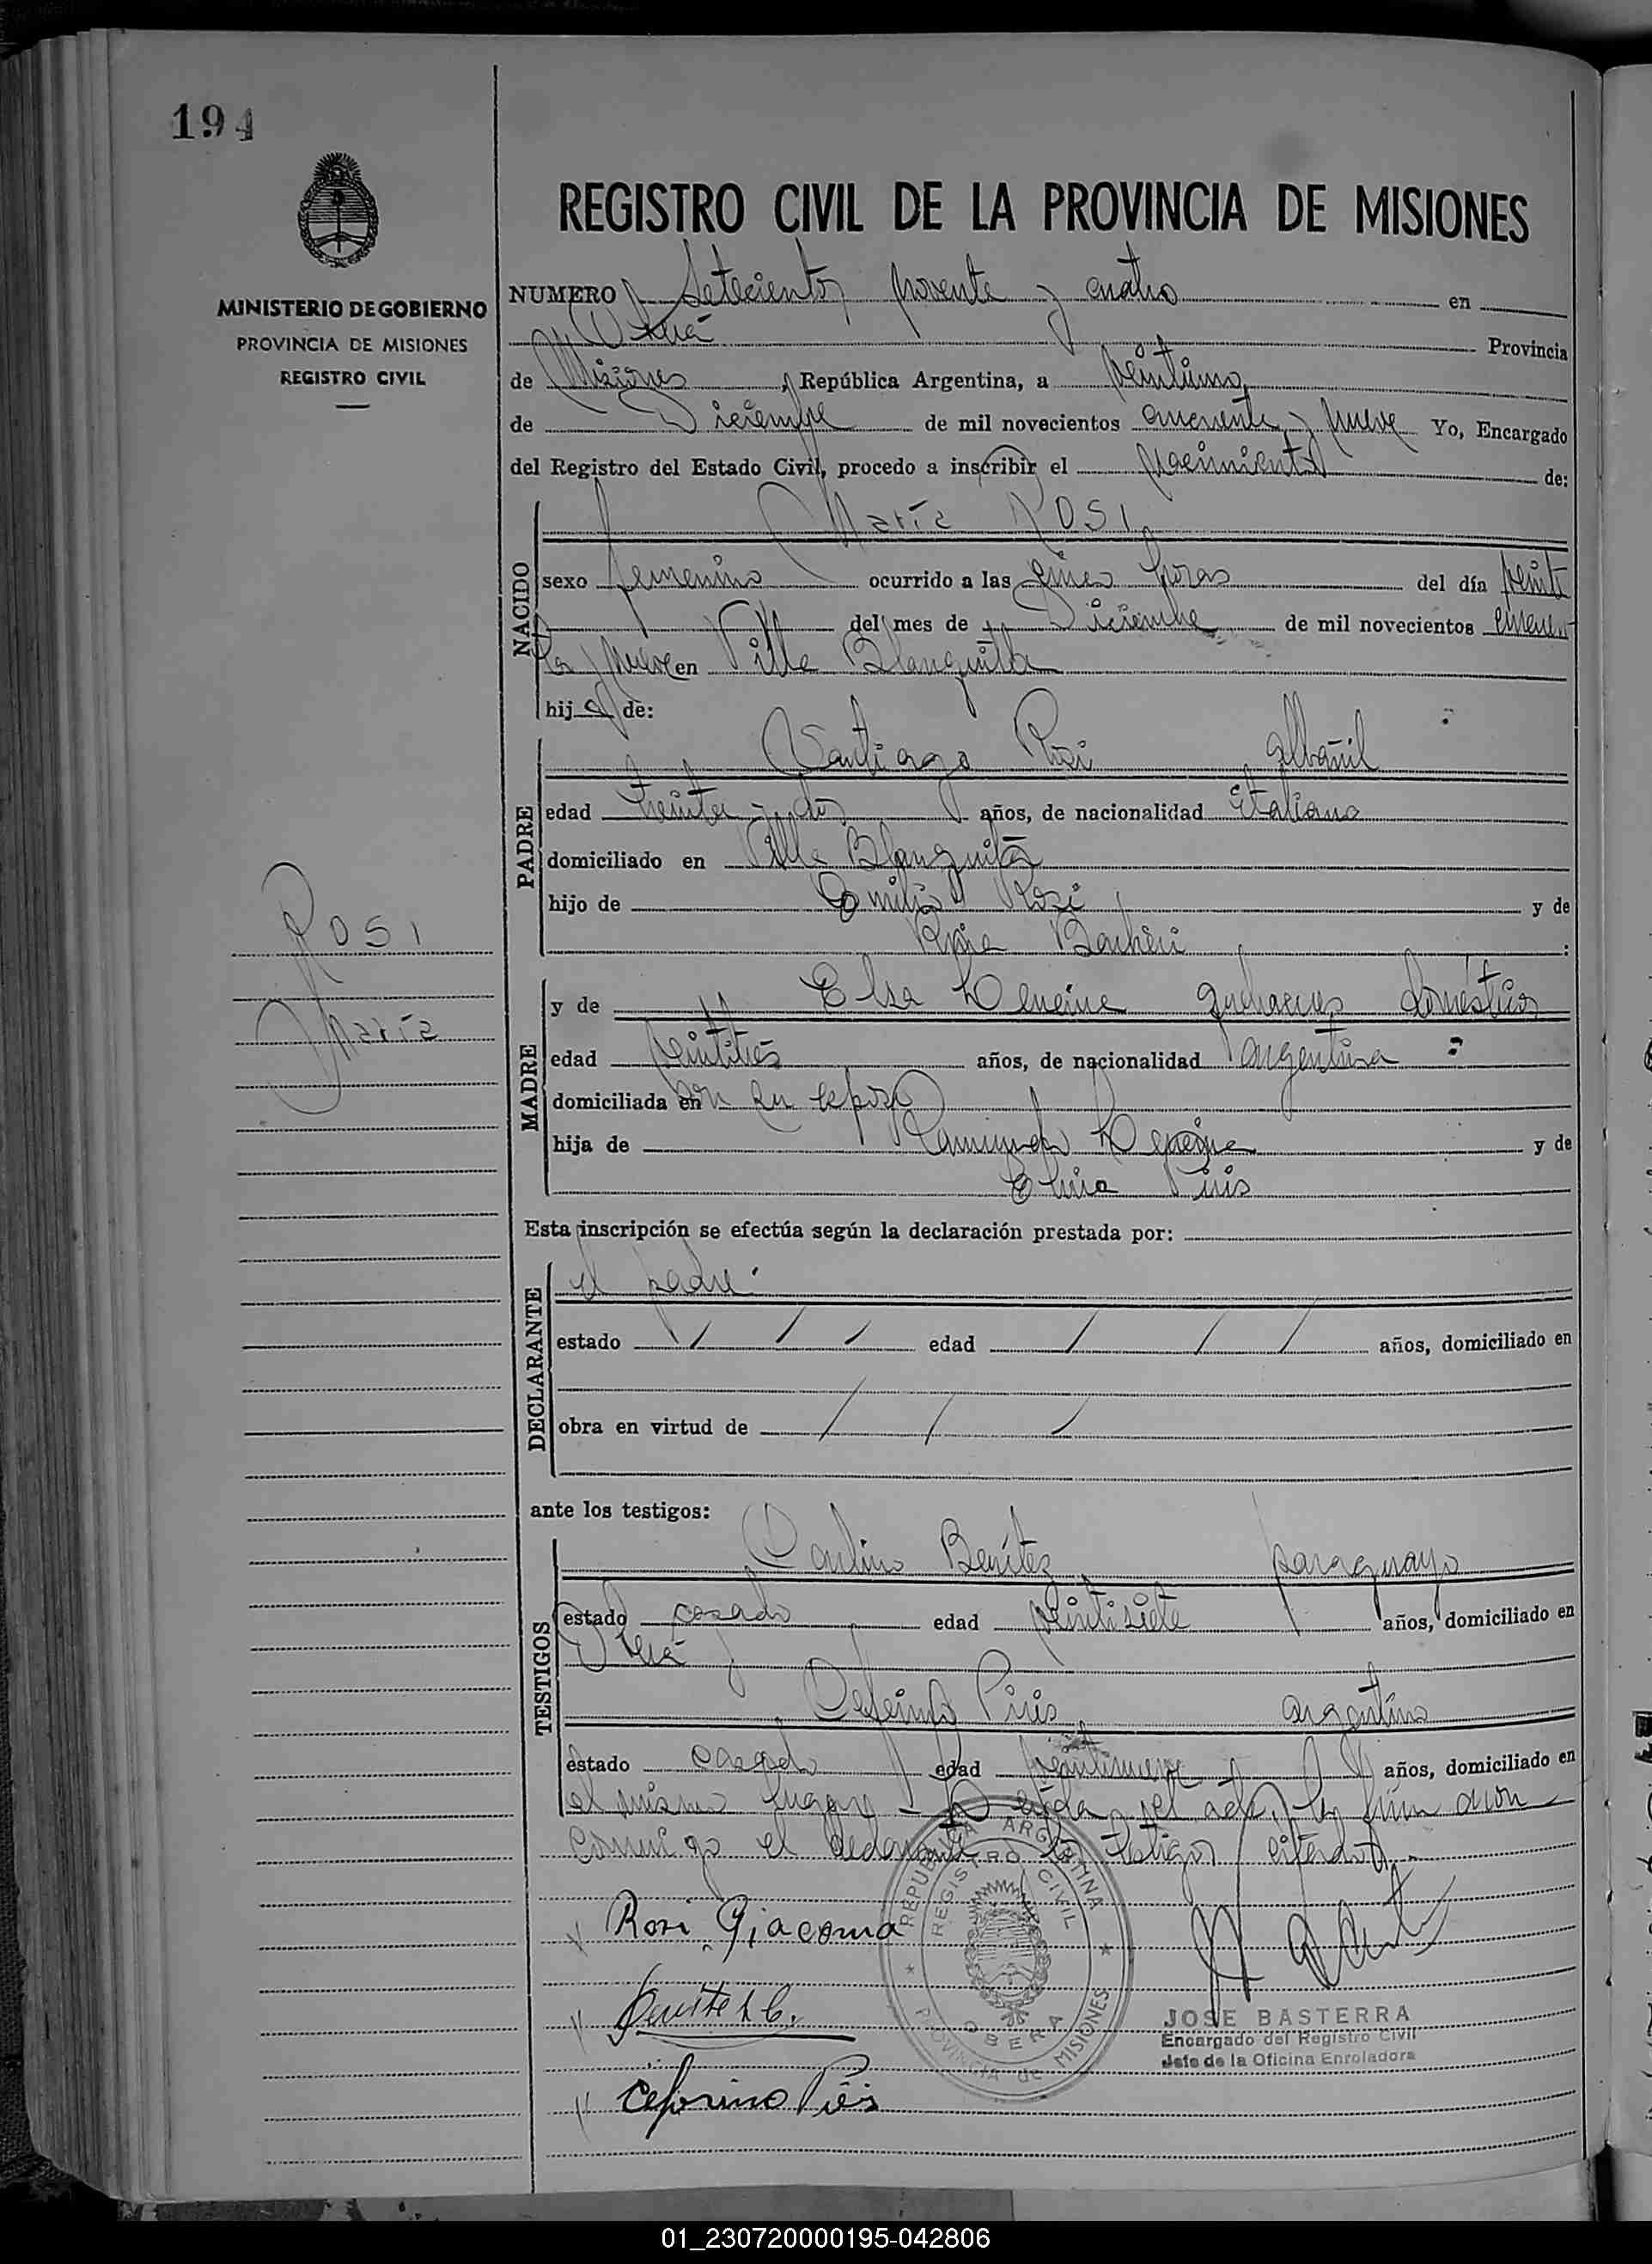 194
MINISTERIO DE GOBIERNO
PROVINCIA DE MISIONES
REGISTRO CIVIL
REGISTRO CIVIL DE LA PROVINCIA DE MISIONES
NUMERO Setecientos noventa y cuatro en
Oberá Provincia
de Misiones, República Argentina, a veintiuno
de Diciembre de mil novecientos cincuenta y nueve Yo, Encargado
del Registro del Estado Civil, procedo a inscribir el nacimiento de:
NACIDO
María ROSI
sexo femenino ocurrido a las cinco horas del día veinte
del mes de Diciembre de mil novecientos cincuen
ta y nueve en Villa Blanquita
hija de:
PADRE
Santiago Rosi albañil
edad treinta y dos años, de nacionalidad italiana
domiciliado en Villa Blanquita
hijo de Emilio Rosi y de
ROSI
María
MADRE
y de Elsa quehaceres domésticos
edad veintitrés años, de nacionalidad argentina
domiciliada en con su esposo
hija de Ramiundo y de
Elvira Piris
Esta inscripción se efectúa según la declaración prestada por:
DECLARANTE
el padre.
estado / / / edad / / / años, domiciliado en
obra en virtud de / / /
ante los testigos:
TESTIGOS
Benítez paraguayo
estado casado edad veintisiete años, domiciliado en
Oberá
Ceferino Piris argentino
estado casado edad veintinueve años, domiciliado en
el mismo lugar - Leída el acta, la firmaron
conmigo el declarante y los testigos citados.
Rosi Giacomo
Benítez C.
Ceferino Piris
REPUBLICA ARGENTINA
REGISTRO CIVIL
OBERA
PROVINCIA de MISIONES
JOSE BASTERRA
Encargado del Registro Civil
Jefe de la Oficina Enroladora
01_230720000195-042806